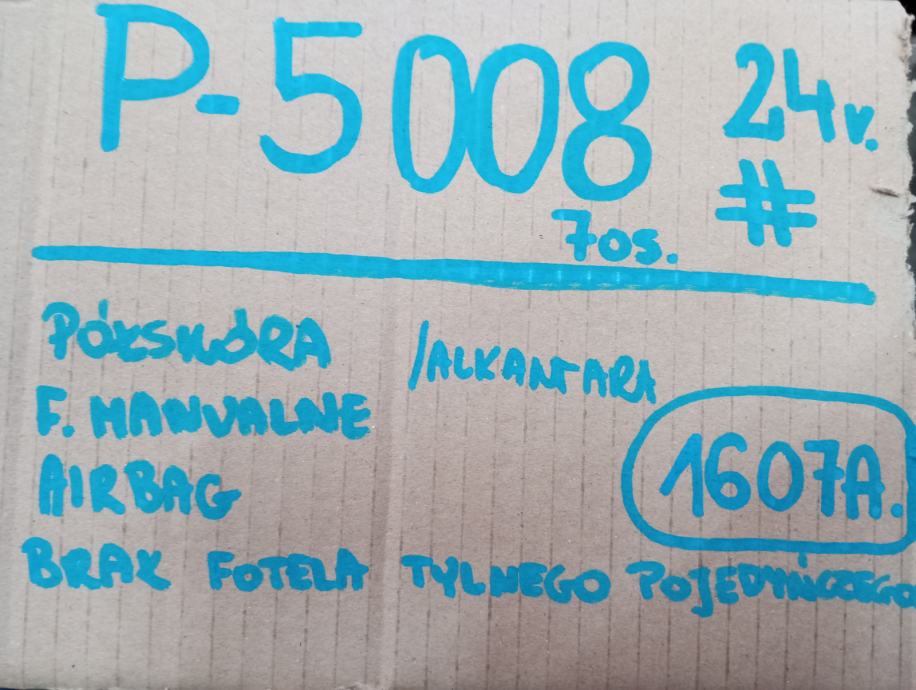 P-5008 24r.
#
7os.
PÓŁSKÓRA /ALKANTARA
F. MANUALNE
AIRBAG
1607A.
BRAK FOTELA TYLNEGO POJEDYŃCZEGO